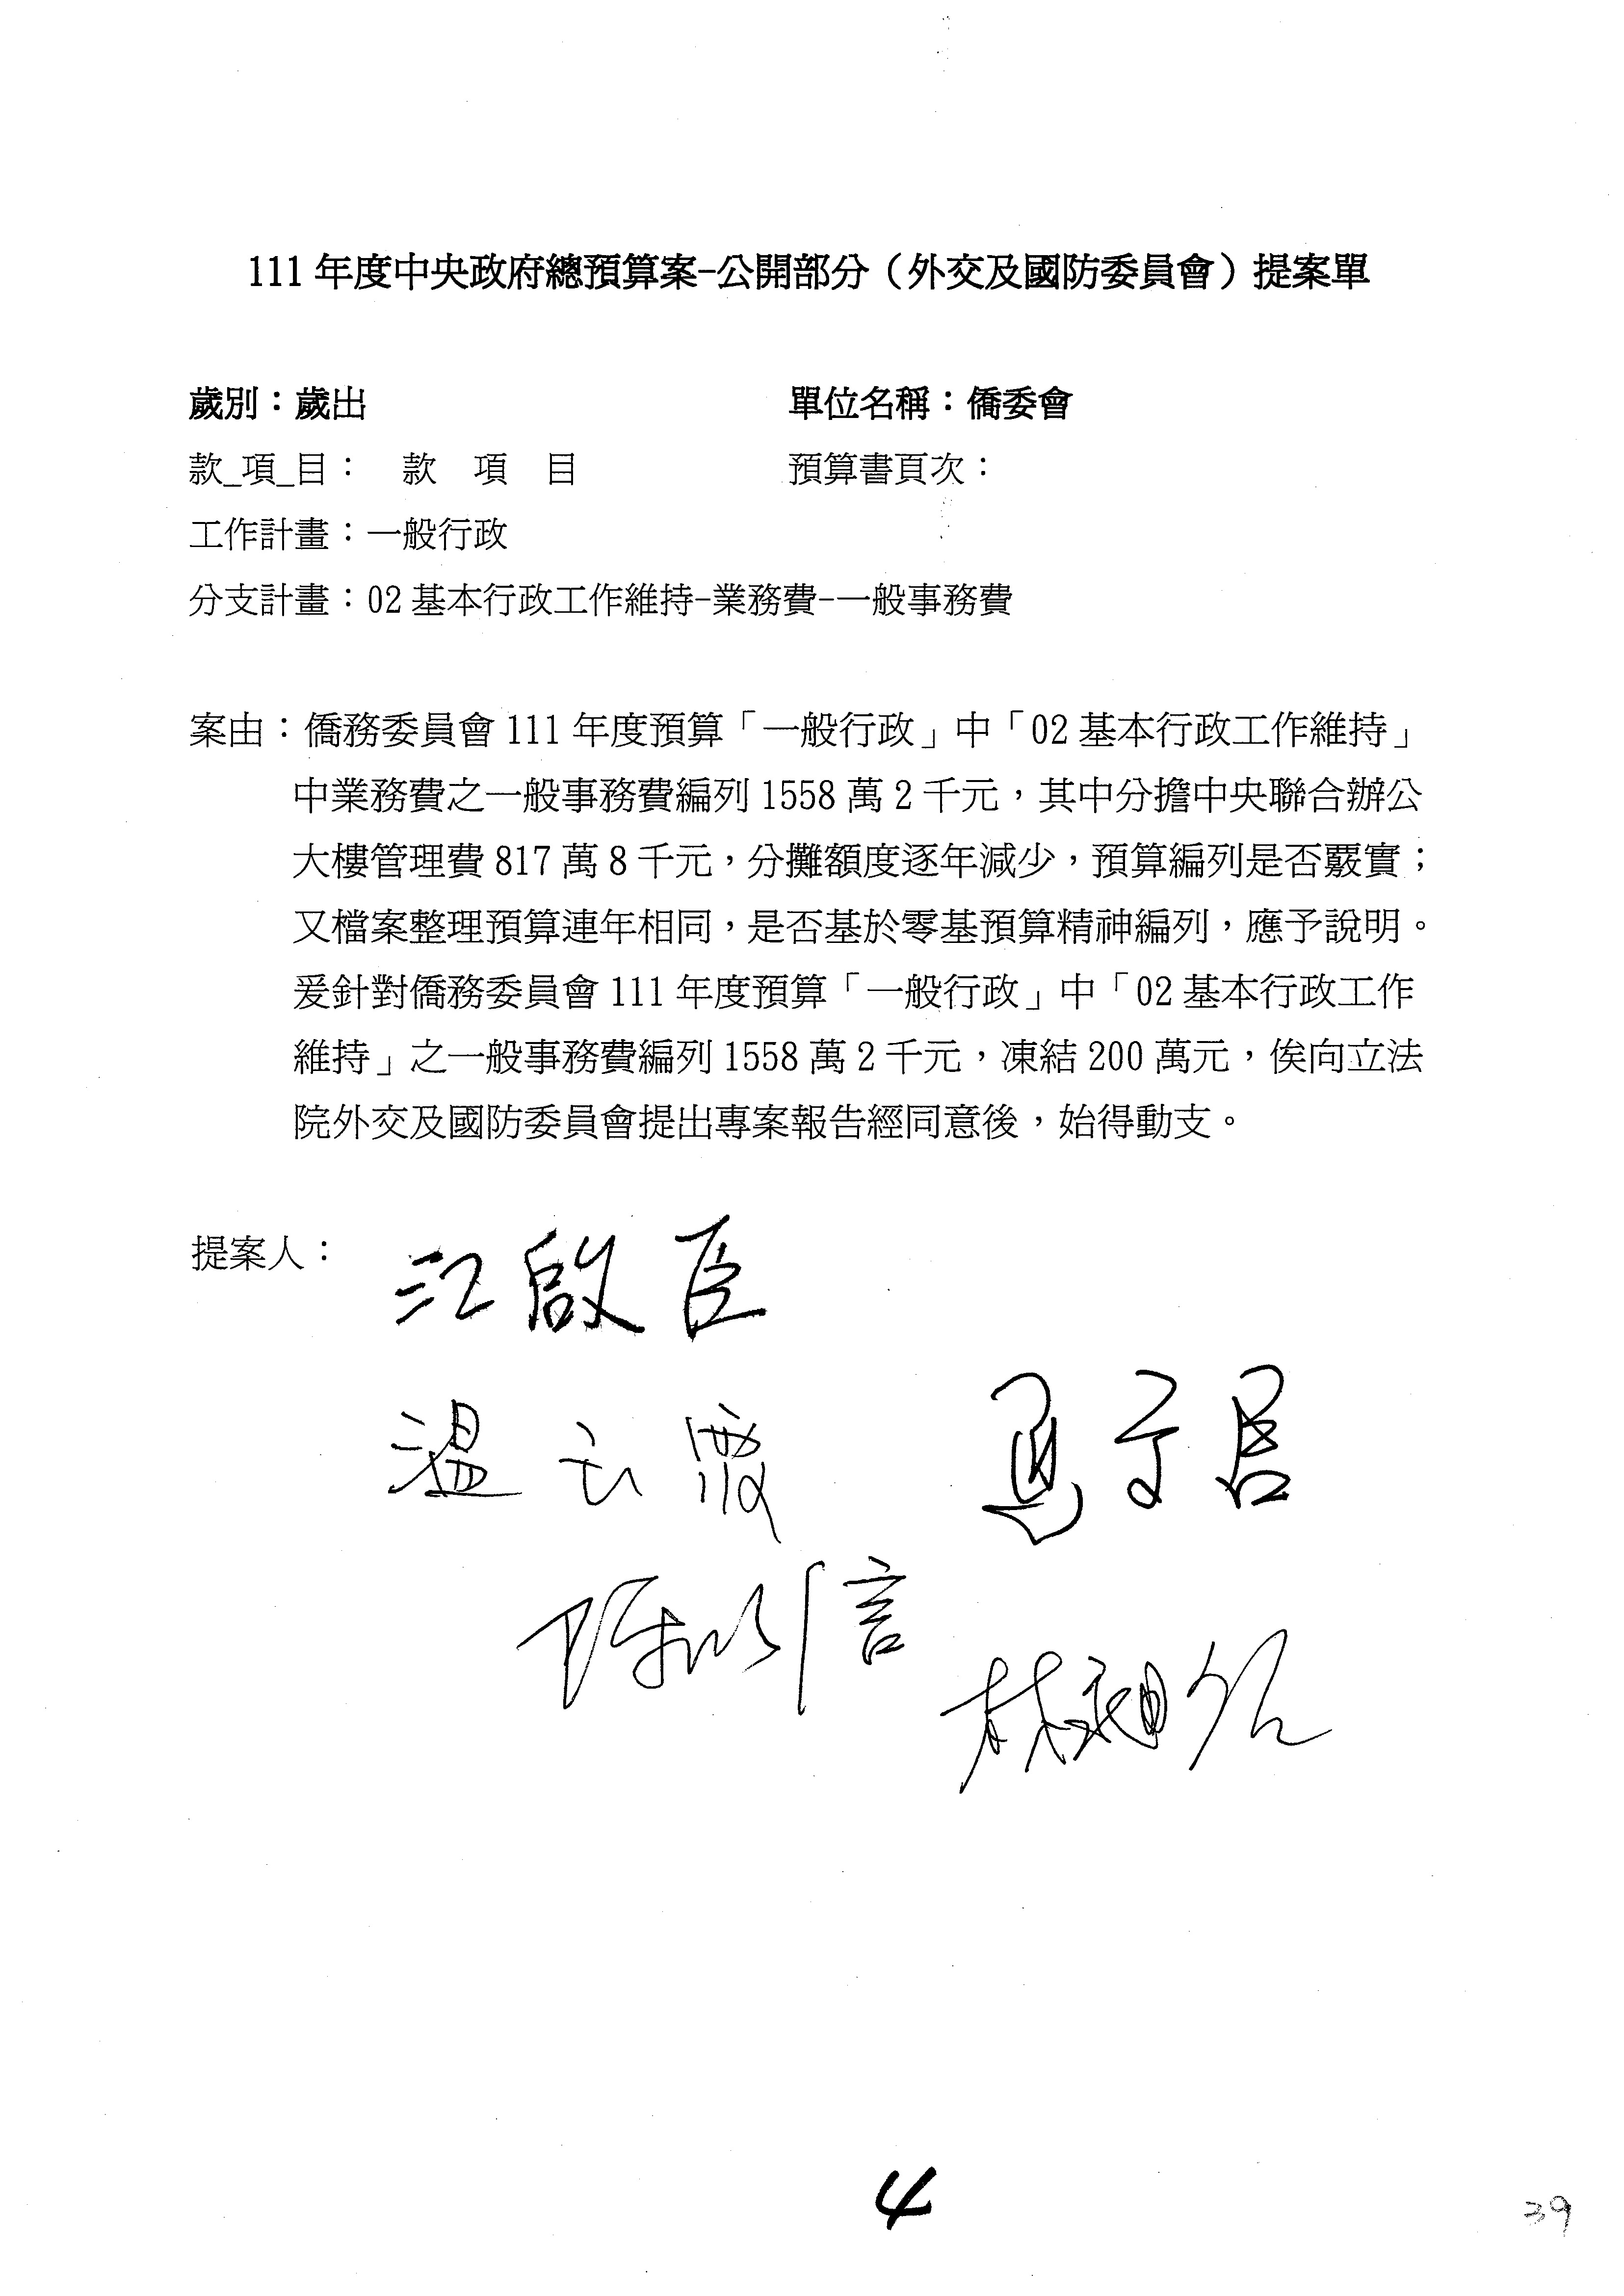 111 年度中央政府總預算案-公開部分（外交及國防委員會）提案單
歲別：歲出 單位名稱：僑委會
款_項_目： 款 項 目 預算書頁次：
工作計畫：一般行政
分支計畫：02 基本行政工作維持-業務費-一般事務費
案由：僑務委員會 111 年度預算「一般行政」中「02 基本行政工作維持」
中業務費之一般事務費編列 1558 萬 2 千元，其中分擔中央聯合辦公
大樓管理費 817 萬 8 千元，分攤額度逐年減少，預算編列是否覈實；
又檔案整理預算連年相同，是否基於零基預算精神編列，應予說明。
爰針對僑務委員會 111 年度預算「一般行政」中「02 基本行政工作
維持」之一般事務費編列 1558 萬 2 千元，凍結 200 萬元，俟向立法
院外交及國防委員會提出專案報告經同意後，始得動支。
提案人：
江啟臣
溫玉霞 馬文君
陳以信
4
39